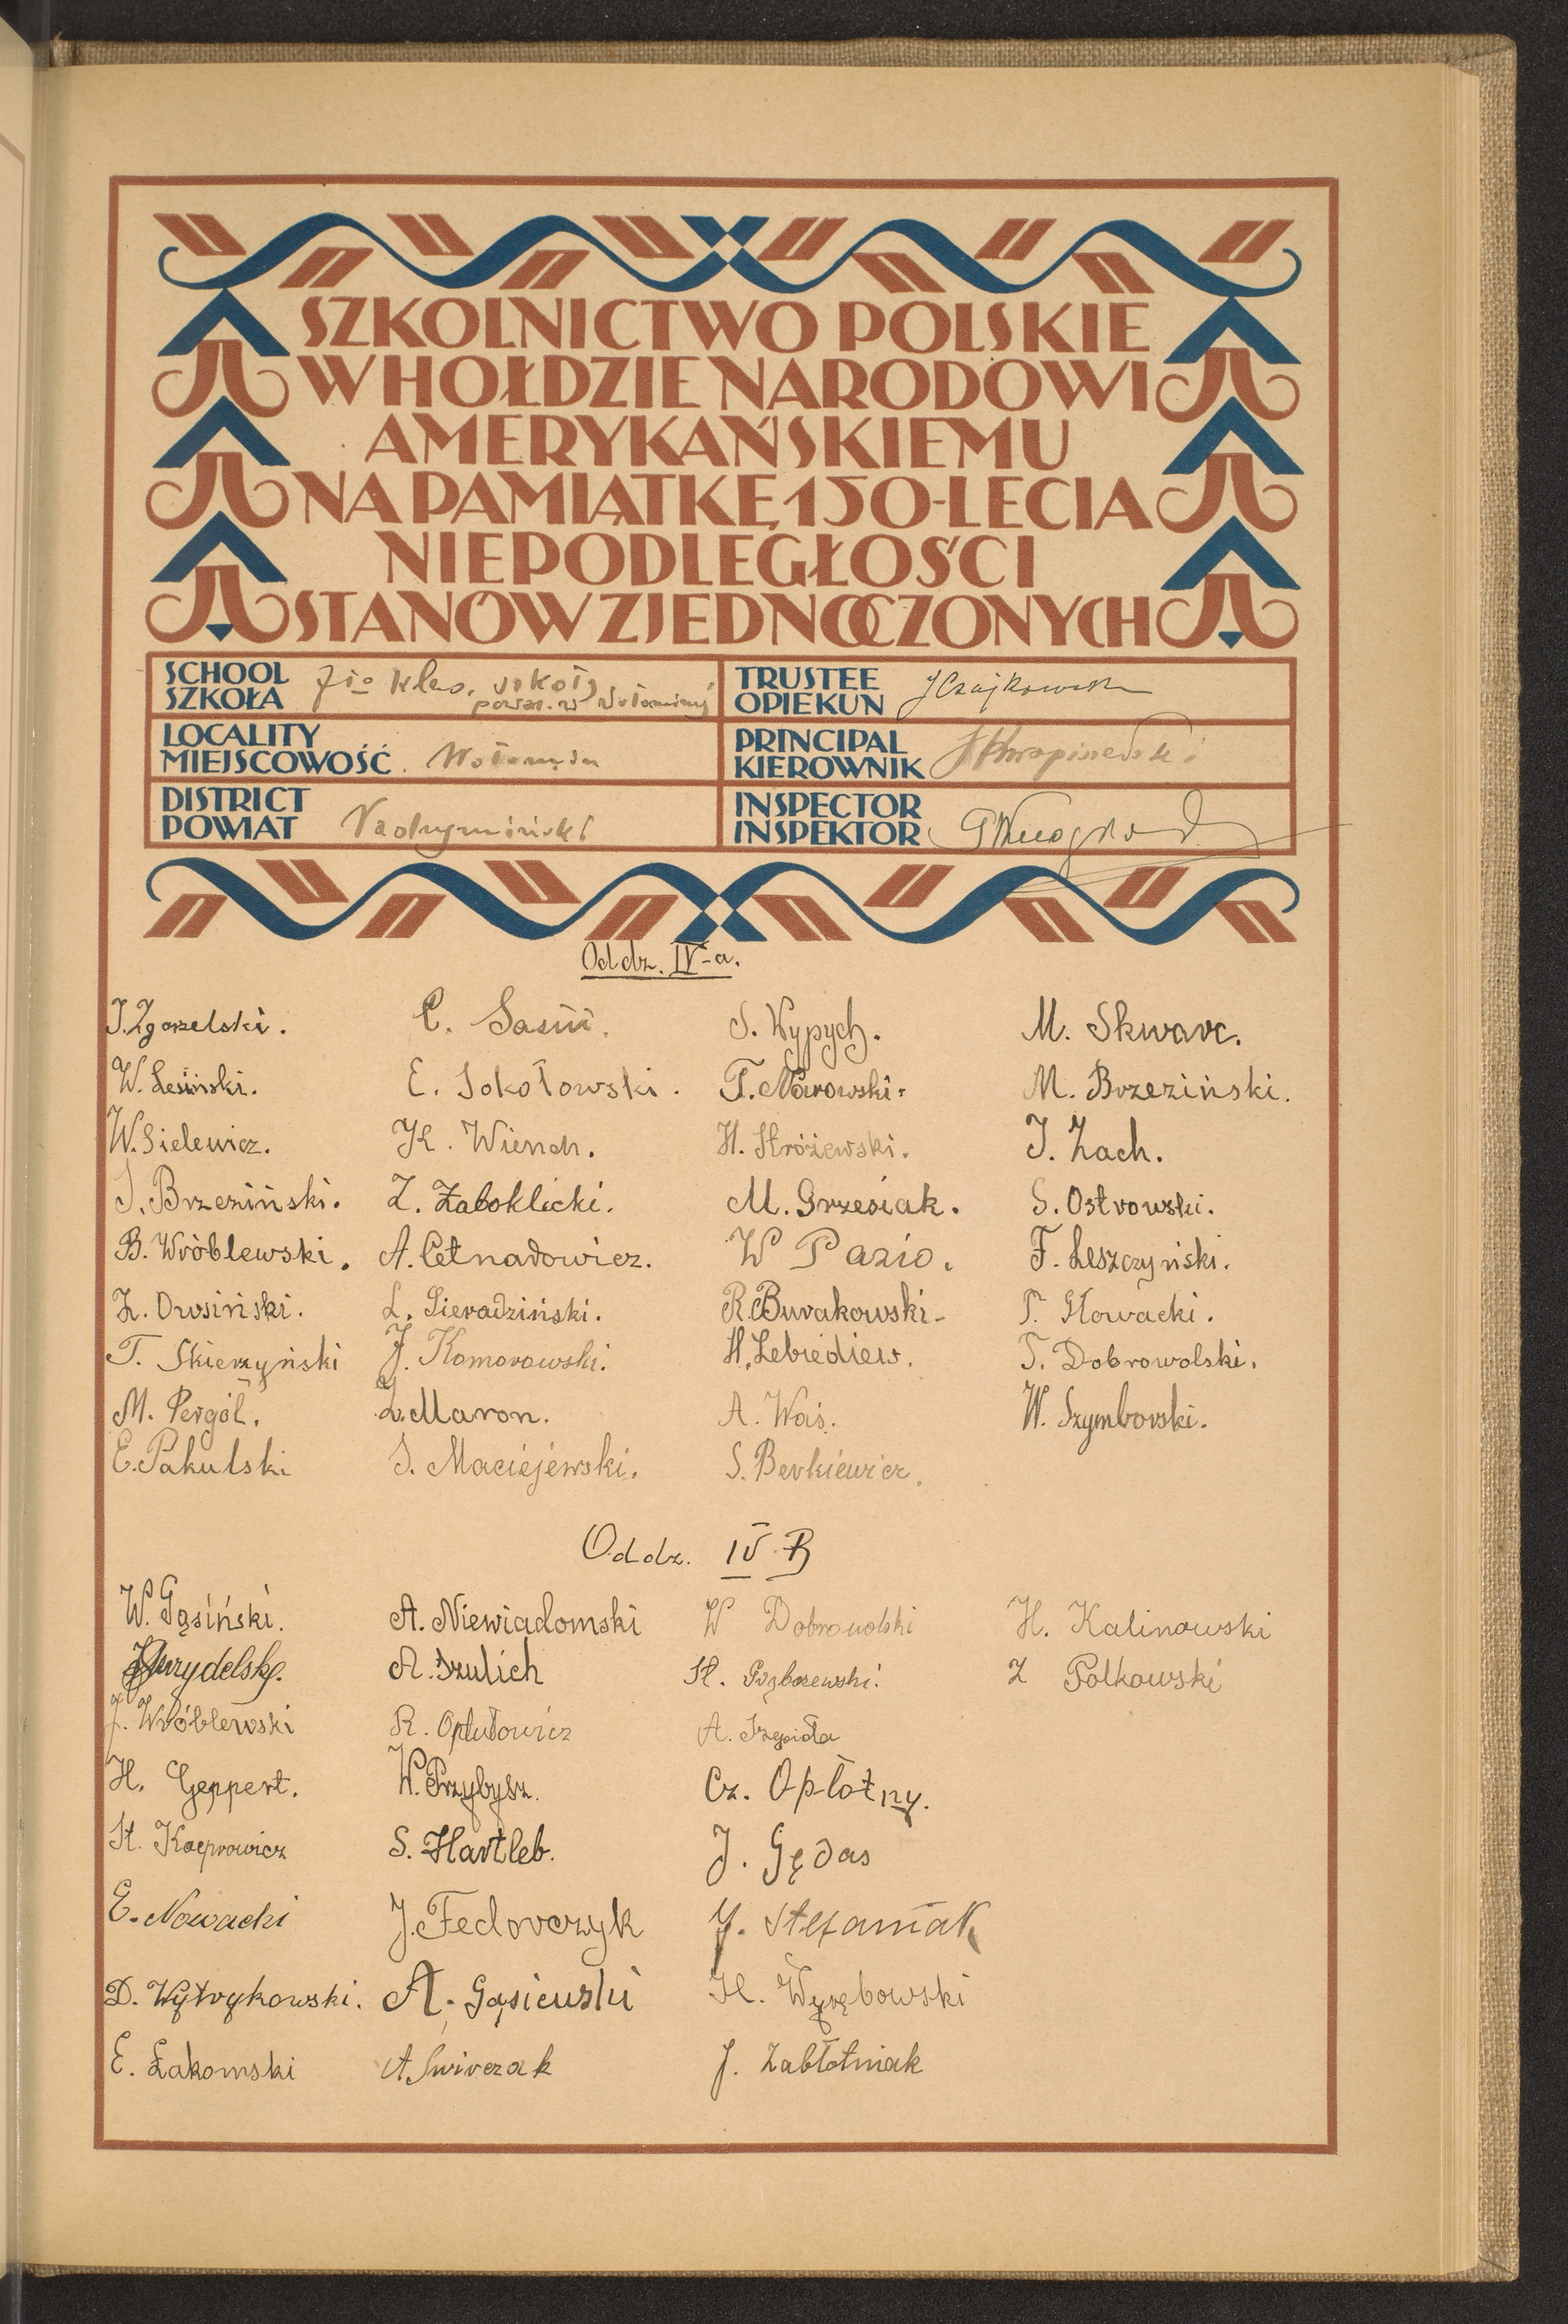 SZKOLNICTWO POLSKIE
W HOŁDZIE NARODOWI
AMERYKAŃSKIEMU
NA PAMIĄTKĘ 150-LECIA
NIEPODLEGŁOŚCI
STANÓW ZJEDNOCZONYCH
SCHOOL
SZKOŁA
7io klas. szkoły
powsz. w Wołominie
TRUSTEE
OPIEKUN
LOCALITY
MIEJSCOWOŚĆ
Wołomin
PRINCIPAL
KIEROWNIK
DISTRICT
POWIAT
Radzymiński
INSPECTOR
INSPEKTOR
Oddz. IV-a.
J. Zgorzelski. C. Sasin. S. Wypych. M. Skwarc.
W. Lesiński. E. Sokołowski. T. Nowowski. M. Brzeziński.
W. Sielewicz. K. Wiench. H. Stróżewski. J. Zach.
S. Brzeziński. Z. Zaboklicki. M. Grzesiak. S. Ostrowski.
B. Wróblewski. A. Cetnarowicz. W Pazio. F. Leszczyński.
Z. Owsiński. L. Sieradziński. R. Burakowski T. Głowacki.
T. Skierzyński J. Komorowski. H. Lebiediew. T. Dobrowolski.
M. Pergół. L. Maron. A. Woś. W. Szymborski.
E. Pakulski S. Maciejewski. S. Berkiewicz.
Oddz. IV B
W. Gąsiński. A. Niewiadomski W Dobrowolski H. Kalinowski
A. Szulich St. Z Polkowski
J. Wróblewski R. Opłutowicz A.
H. Geppert. W. Przybysz. Cz. Opłotny.
St. Kacprowicz S. Hartleb. J. Gędas
E. Nowacki J. Fedorczyk J. Stefaniak
D. Wytrykowski. A. Gąsiewski H. Wyrębowski
E. Łakomski A. Świrczak J. Zabłotniak